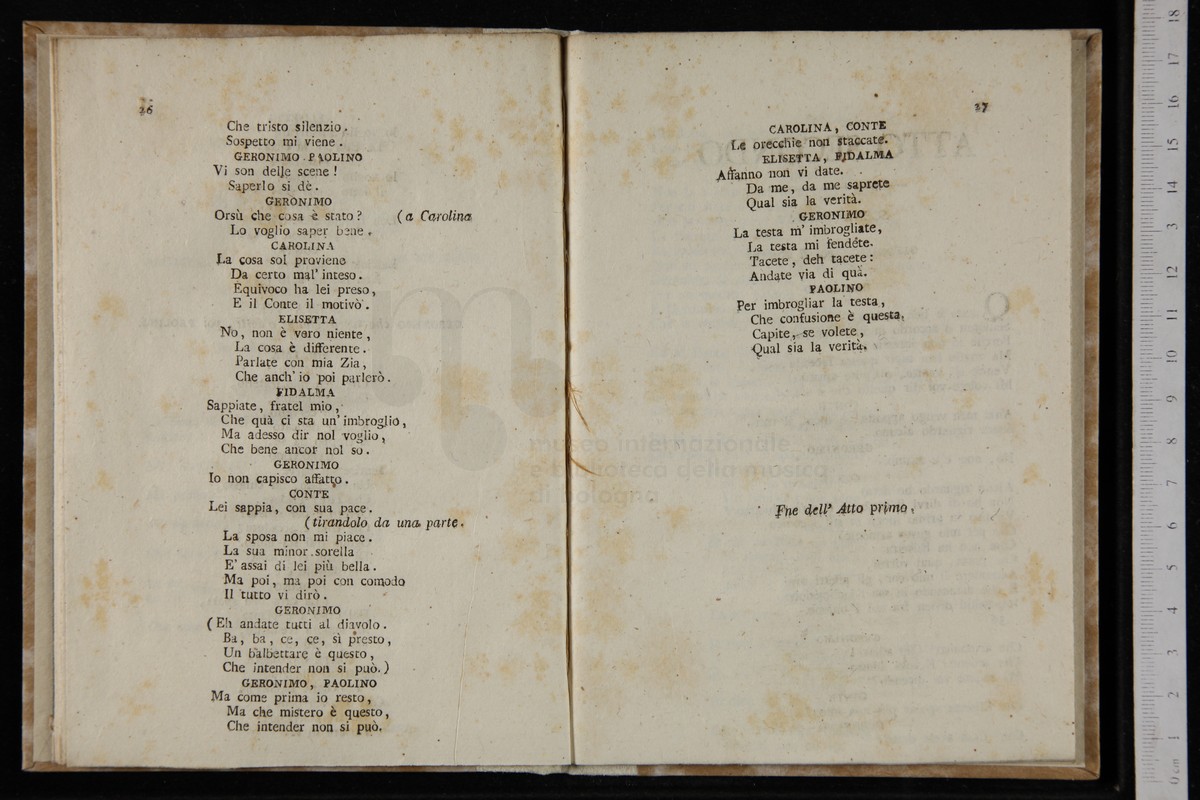 26
Che tristo silenzio.
Sospetto mi viene.
GERONIMO. PAOLINO
Vi son delle scene!
Saperlo si dè.
GERONIMO
Orsù che cosa è stato? (a Carolina
Lo voglio saper bene.
CAROLINA
La cosa sol proviene
Da certo mal' inteso.
Equivoco ha lei preso,
E il Conte il motivò.
ELISETTA
No, non è vero niente,
La cosa è differente.
Parlate con mia Zia,
Che anch' io poi parlerò.
FIDALMA
Sappiate, fratel mio,
Che quà ci sta un' imbroglio,
Ma adesso dir nol voglio,
Che bene ancor nol so.
GERONIMO
Io non capisco affatto.
CONTE
Lei sappia, con sua pace.
(tirandolo da una parte.
La sposa non mi piace.
La sua minor sorella
E' assai di lei più bella.
Ma poi, ma poi con comodo
Il tutto vi dirò.
GERONIMO
(Eh andate tutti al diavolo.
Ba, ba, ce, ce, sì presto,
Un balbettare è questo,
Che intender non si può.)
GERONIMO, PAOLINO
Ma come prima io resto,
Ma che mistero è questo,
Che intender non si può.
27
CAROLINA, CONTE
Le orecchie non staccate.
ELISETTA, FIDALMA
Affanno non vi date.
Da me, da me saprete
Qual sia la verità.
GERONIMO
La testa m' imbrogliate,
La testa mi fendéte.
Tacete, deh tacete:
Andate via di quà.
PAOLINO
Per imbrogliar la testa,
Che confusione è questa.
Capite, se volete,
Qual sia la verità.
Fne dell' Atto primo,
museo internazionale
e biblioteca della musica
di bologna
0 cm 1 2 3 4 5 6 7 8 9 10 11 12 13 14 15 16 17 18